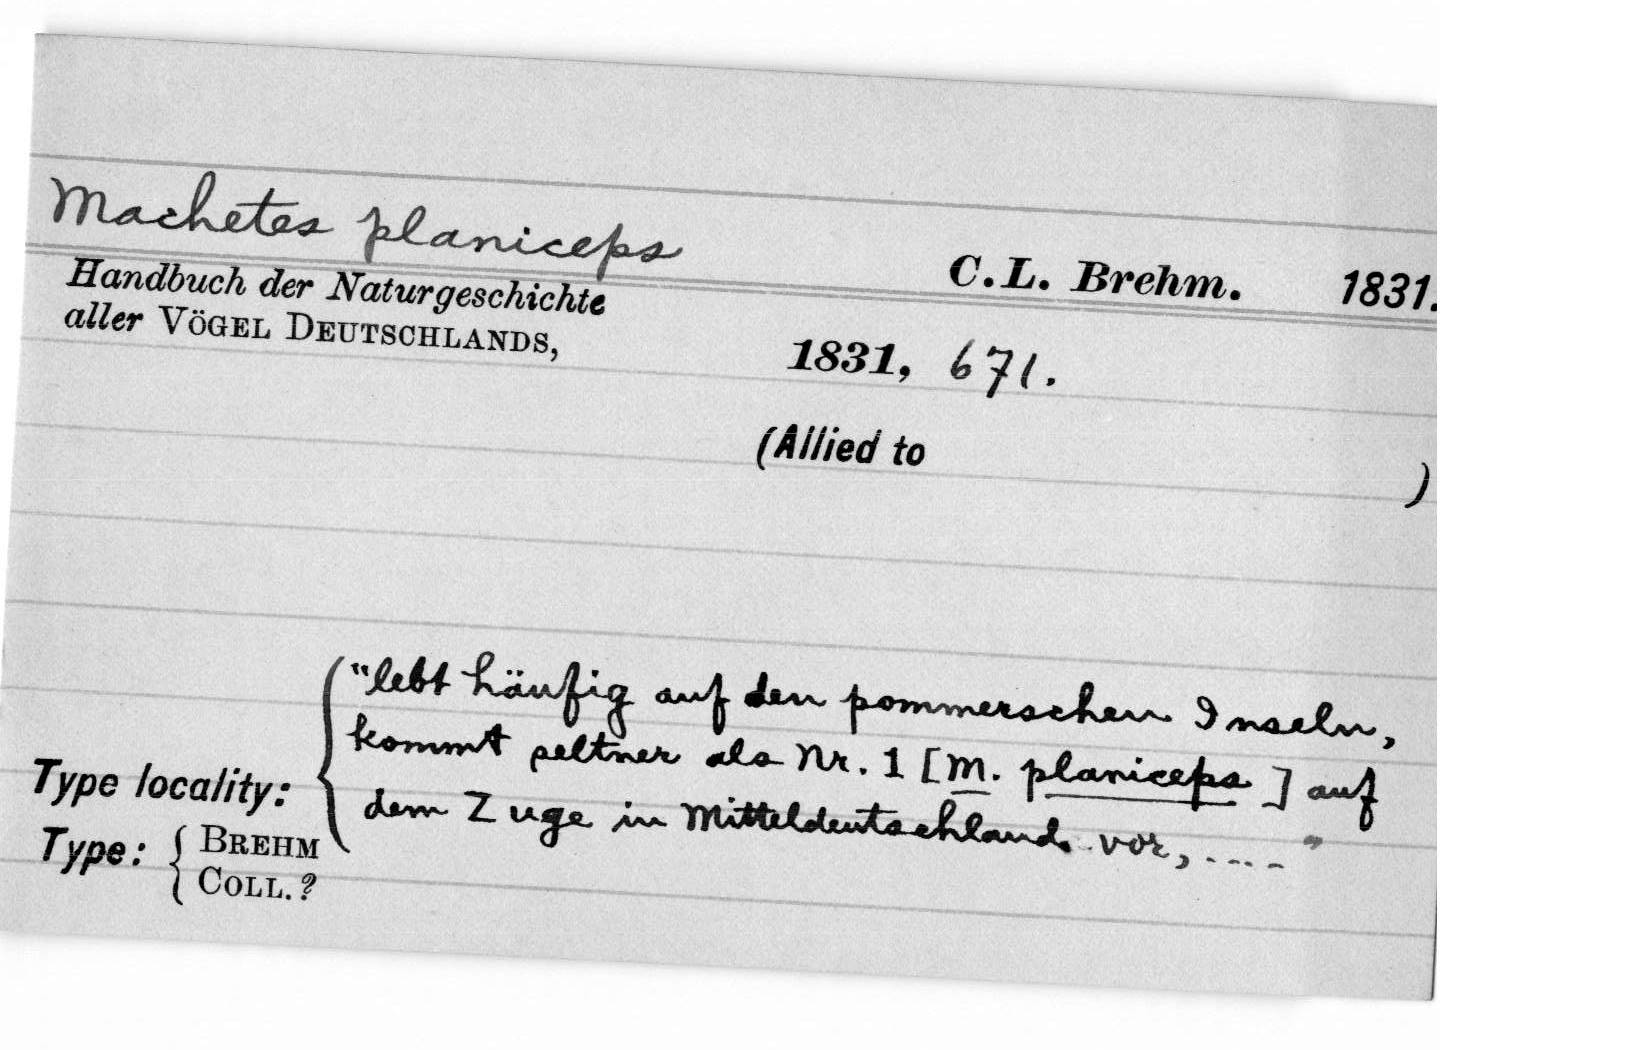 Machetes planiceps
C.L. Brehm. 1831.
Handbuch der Naturgeschichte
aller VÖGEL DEUTSCHLANDS,
1831, 671.
(Allied to )
"lebt häufig auf den pommerschen Inseln,
kommt seltner als Nr. 1 [M. planiceps] auf
dem Zuge in Mitteldeutschland vor, ...."
Type locality:
Type: { BREHM
COLL. ?